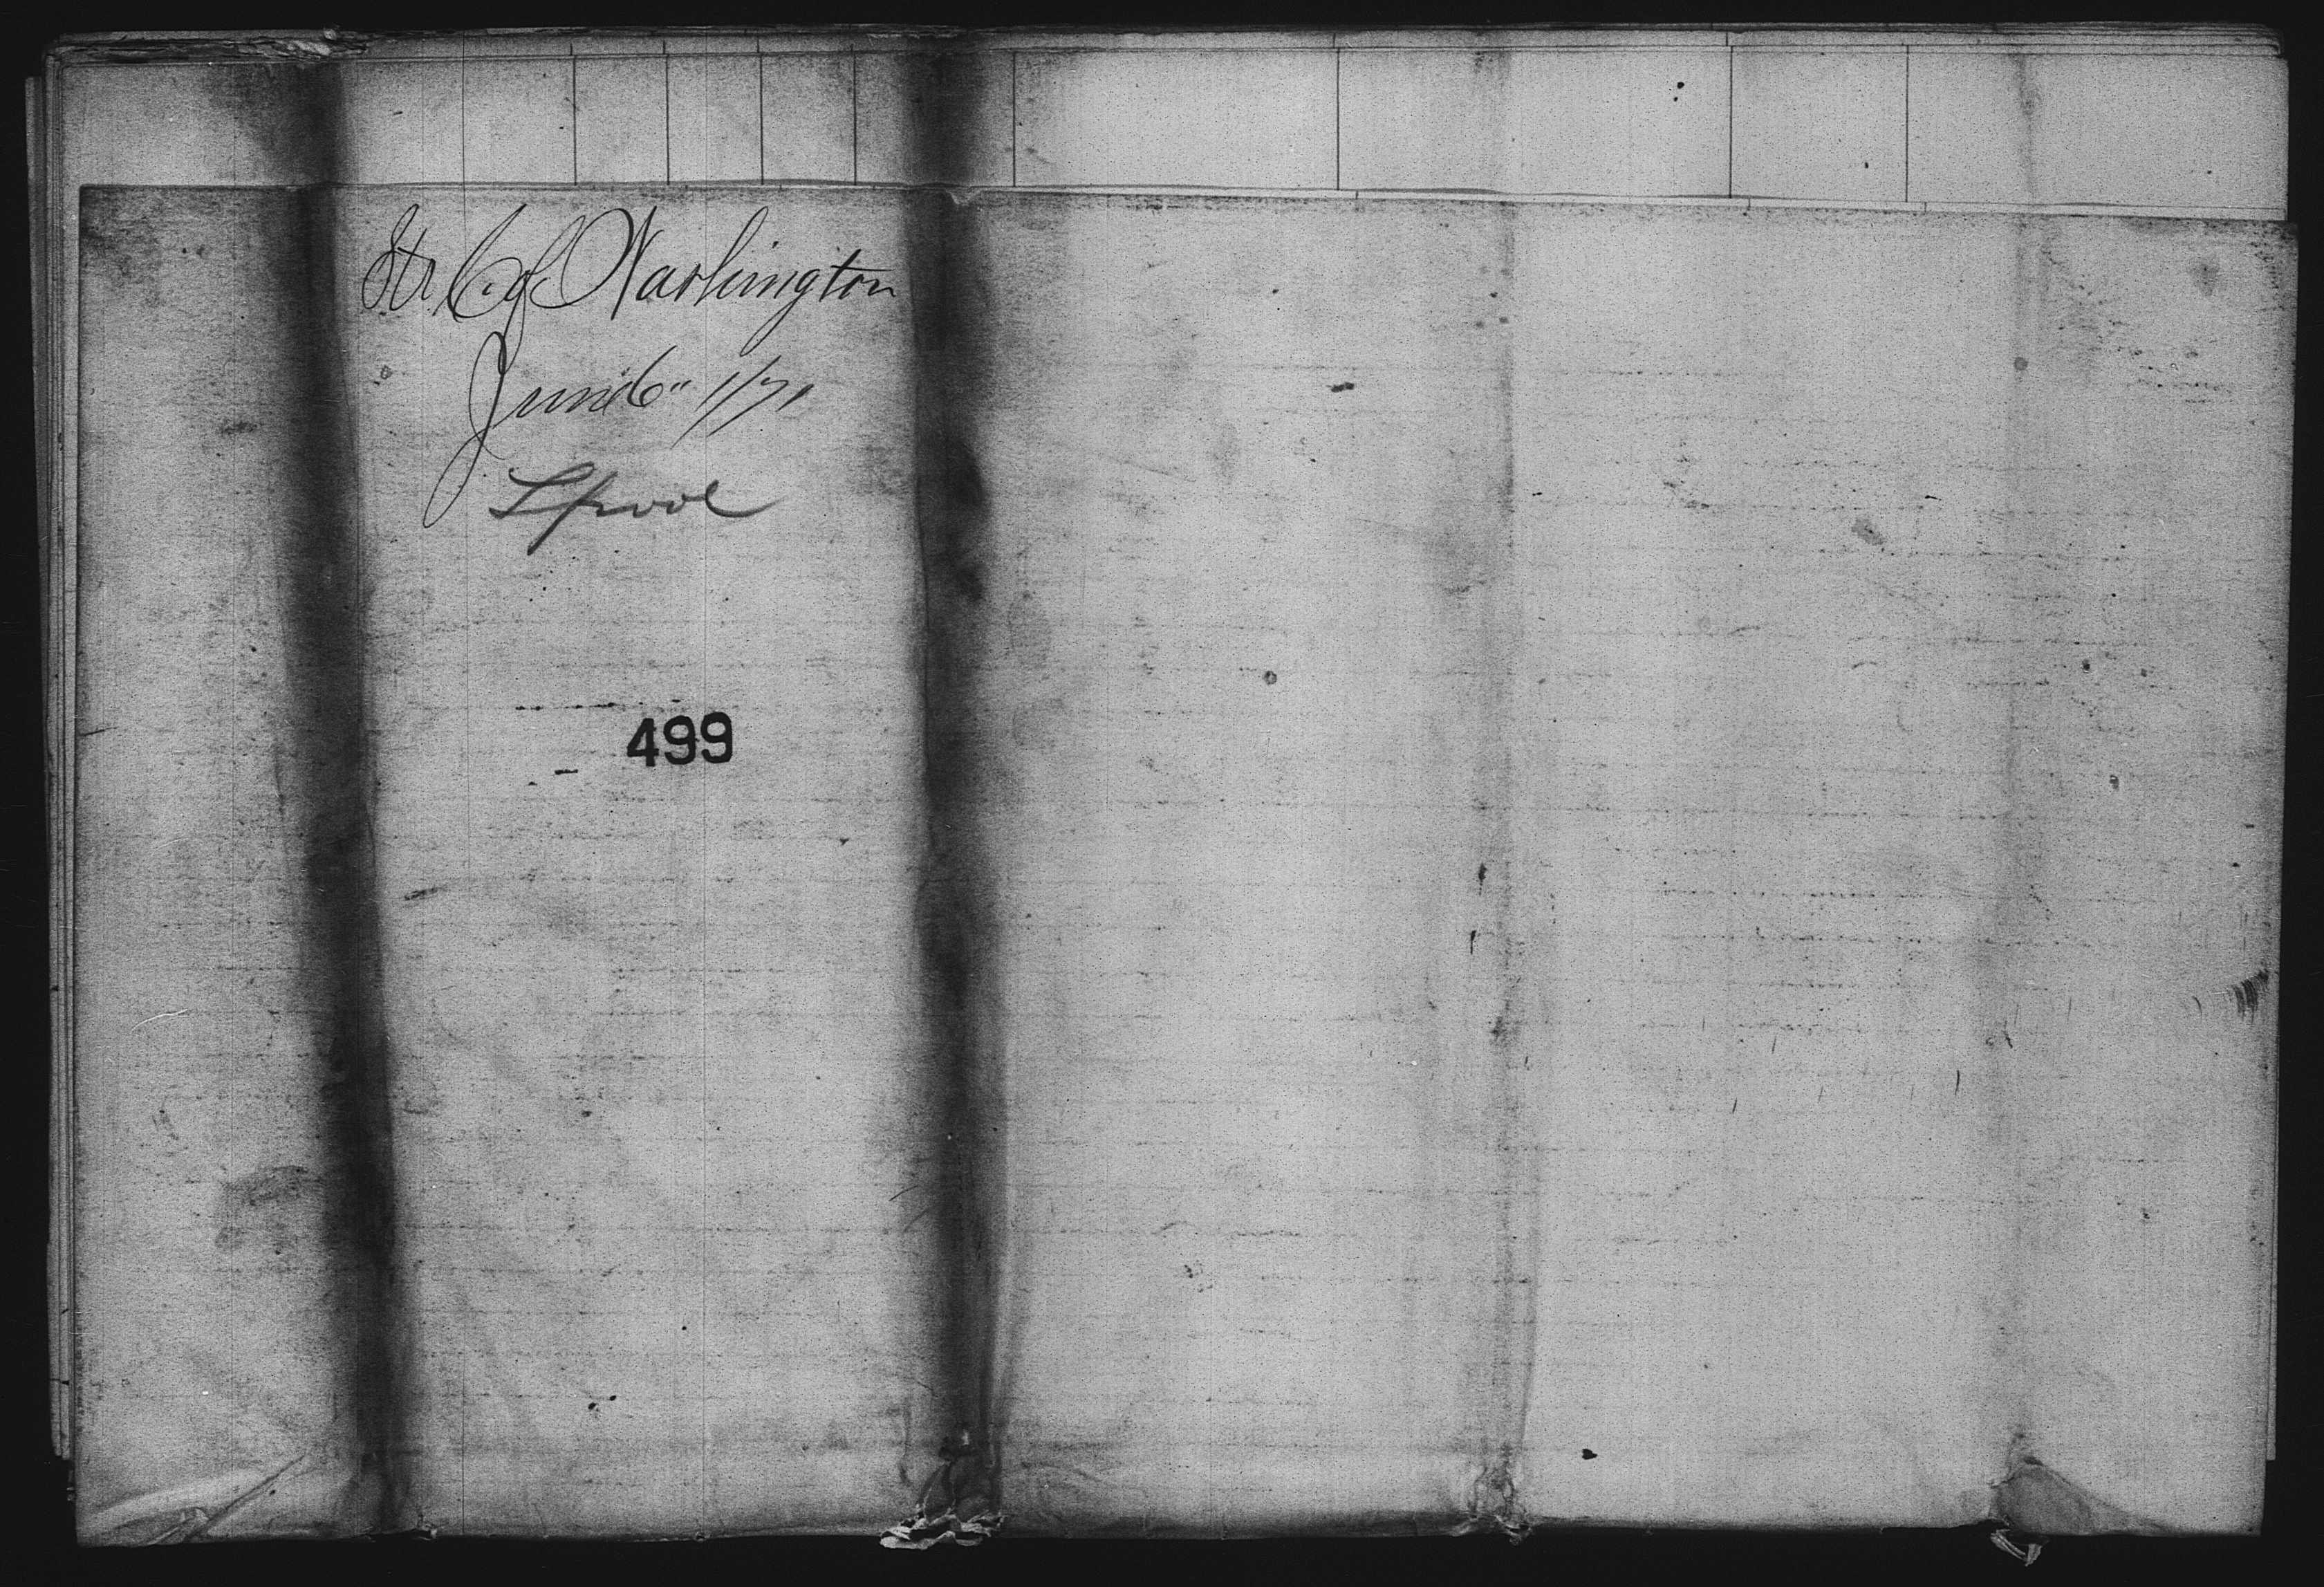 Str C. of Washington
June 6" 1/71
Lpool
499